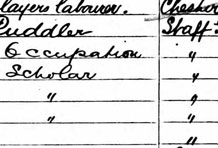 layers labourer. Cheshire
Puddler Staff
Occupation "
Scholar "
" "
" "
"